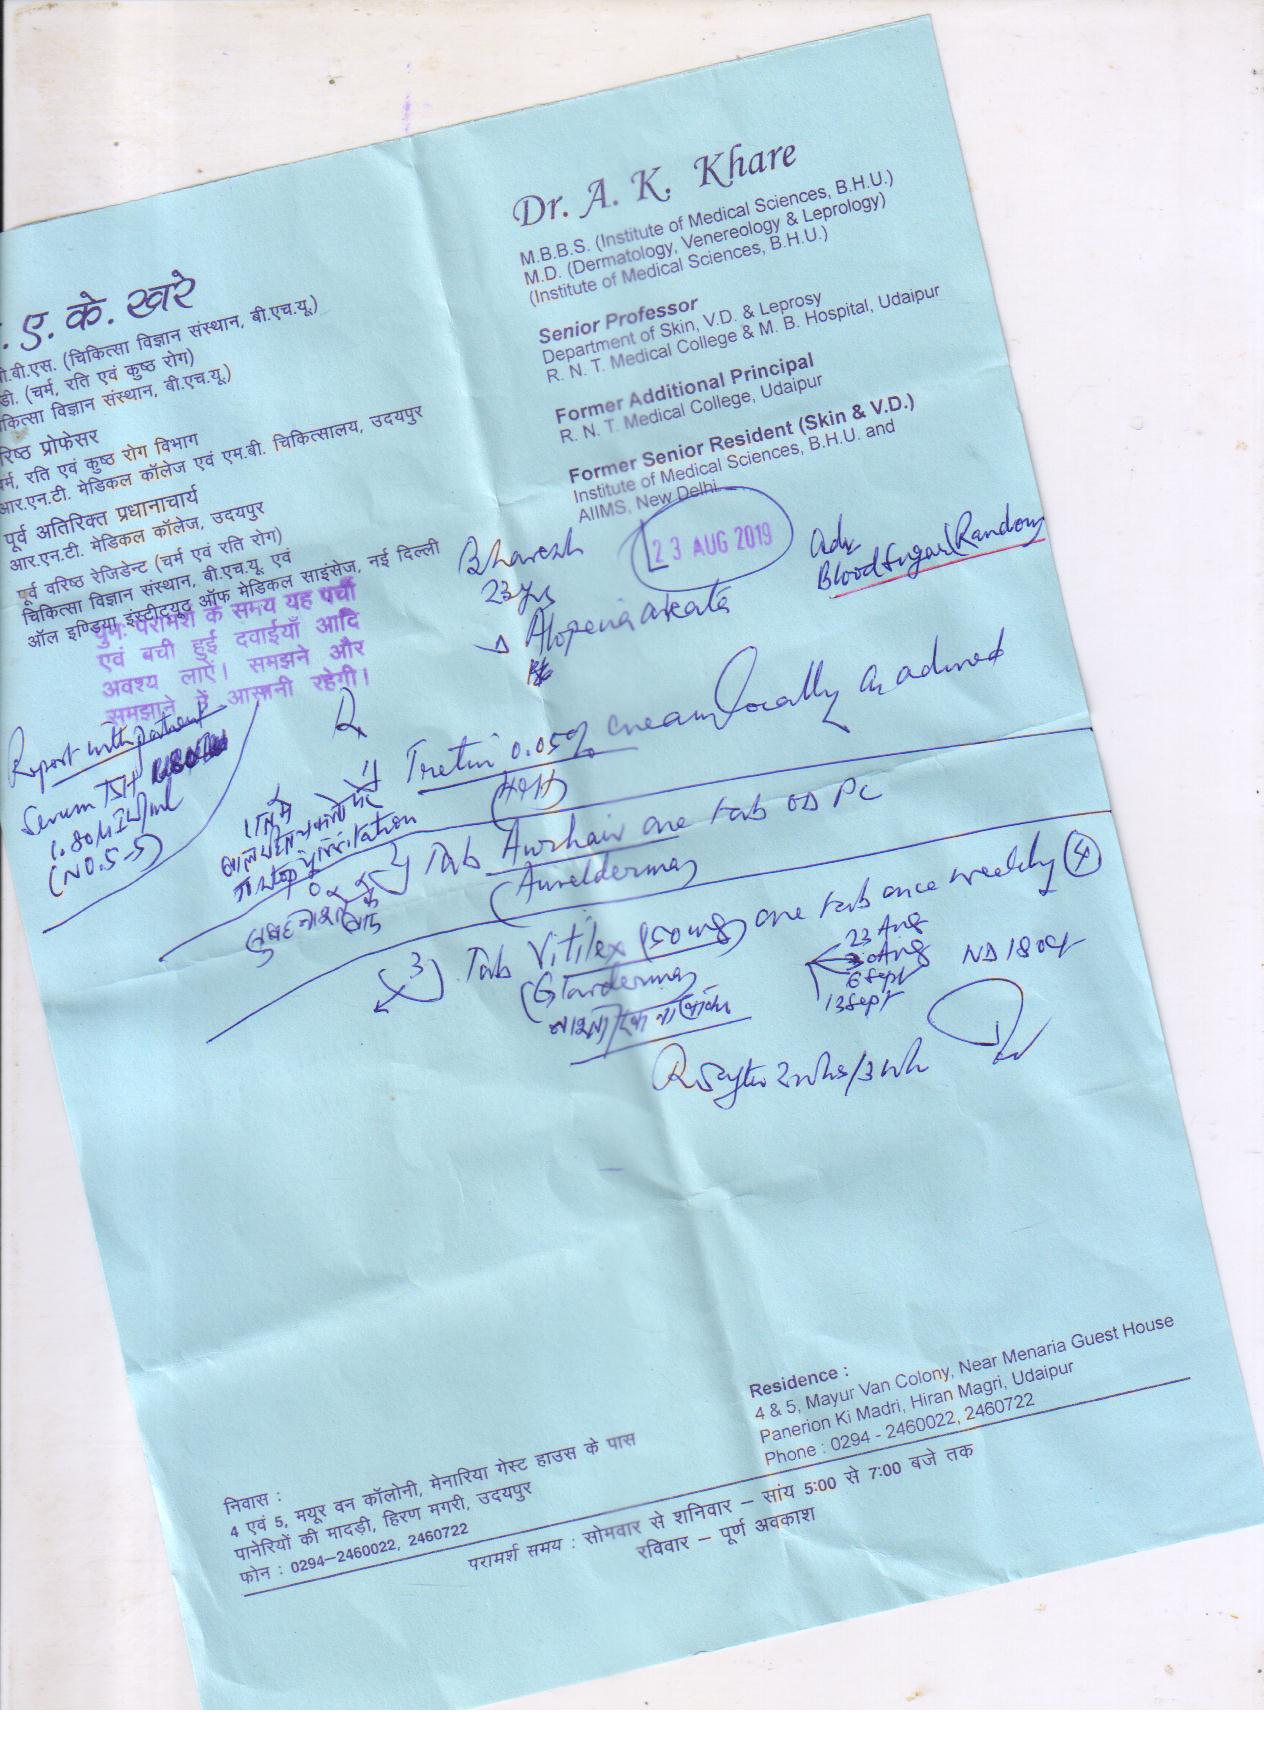 Dr. A. K. Khare
M.B.B.S. (Institute of Medical Sciences, B.H.U.)
M.D. (Dermatology, Venereology & Leprology)
(Institute of Medical Sciences, B.H.U.)
Senior Professor
Department of Skin, V.D. & Leprosy
R. N. T. Medical College & M. B. Hospital, Udaipur
Former Additional Principal
R. N. T. Medical College, Udaipur
Former Senior Resident (Skin & V.D.)
Institute of Medical Sciences, B.H.U. and
AIIMS, New Delhi
. ए. के. खरे
.बी.एस. (चिकित्सा विज्ञान संस्थान, बी.एच.यू.)
डी. (चर्म, रति एवं कुष्ठ रोग)
चिकित्सा विज्ञान संस्थान, बी.एच.यू.)
रिष्ठ प्रोफेसर
र्म, रति एवं कुष्ठ रोग विभाग
आर.एन.टी. मेडिकल कॉलेज एवं एम.बी. चिकित्सालय, उदयपुर
पूर्व अतिरिक्त प्रधानाचार्य
आर.एन.टी. मेडिकल कॉलेज, उदयपुर
पूर्व वरिष्ठ रेजिडेन्ट (चर्म एवं रति रोग)
चिकित्सा विज्ञान संस्थान, बी.एच.यू. एवं
ऑल इण्डिया इंस्टीट्यूट ऑफ मेडिकल साइंसेज, नई दिल्ली
पुनः परामर्श के समय यह पर्ची
एवं बची हुई दवाईयाँ आदि
अवश्य लाऐं। समझने और
समझाने में आसानी रहेगी।
23 AUG 2019
Bhavesh
23 yrs
Alopecia areata
Adv
Blood Sugar (Random)
Report with patient
Serum TSH
1.80 μIU/ml
(N0.5-5)
1) Tretin 0.05% cream locally as advised
irritation
2) Tab Aurhair one tab OD PC
(Aurelderma)
3) Tab Vitilex (50 mg) one tab once weekly (4)
23 Aug
30 Aug
6 Sept
13 Sept
Residence :
4 & 5, Mayur Van Colony, Near Menaria Guest House
Panerion Ki Madri, Hiran Magri, Udaipur
Phone : 0294 - 2460022, 2460722
निवास :
4 एवं 5, मयूर वन कॉलोनी, मेनारिया गेस्ट हाउस के पास
पानेरियों की मादड़ी, हिरण मगरी, उदयपुर
फोन : 0294-2460022, 2460722
परामर्श समय : सोमवार से शनिवार – सांय 5:00 से 7:00 बजे तक
रविवार – पूर्ण अवकाश